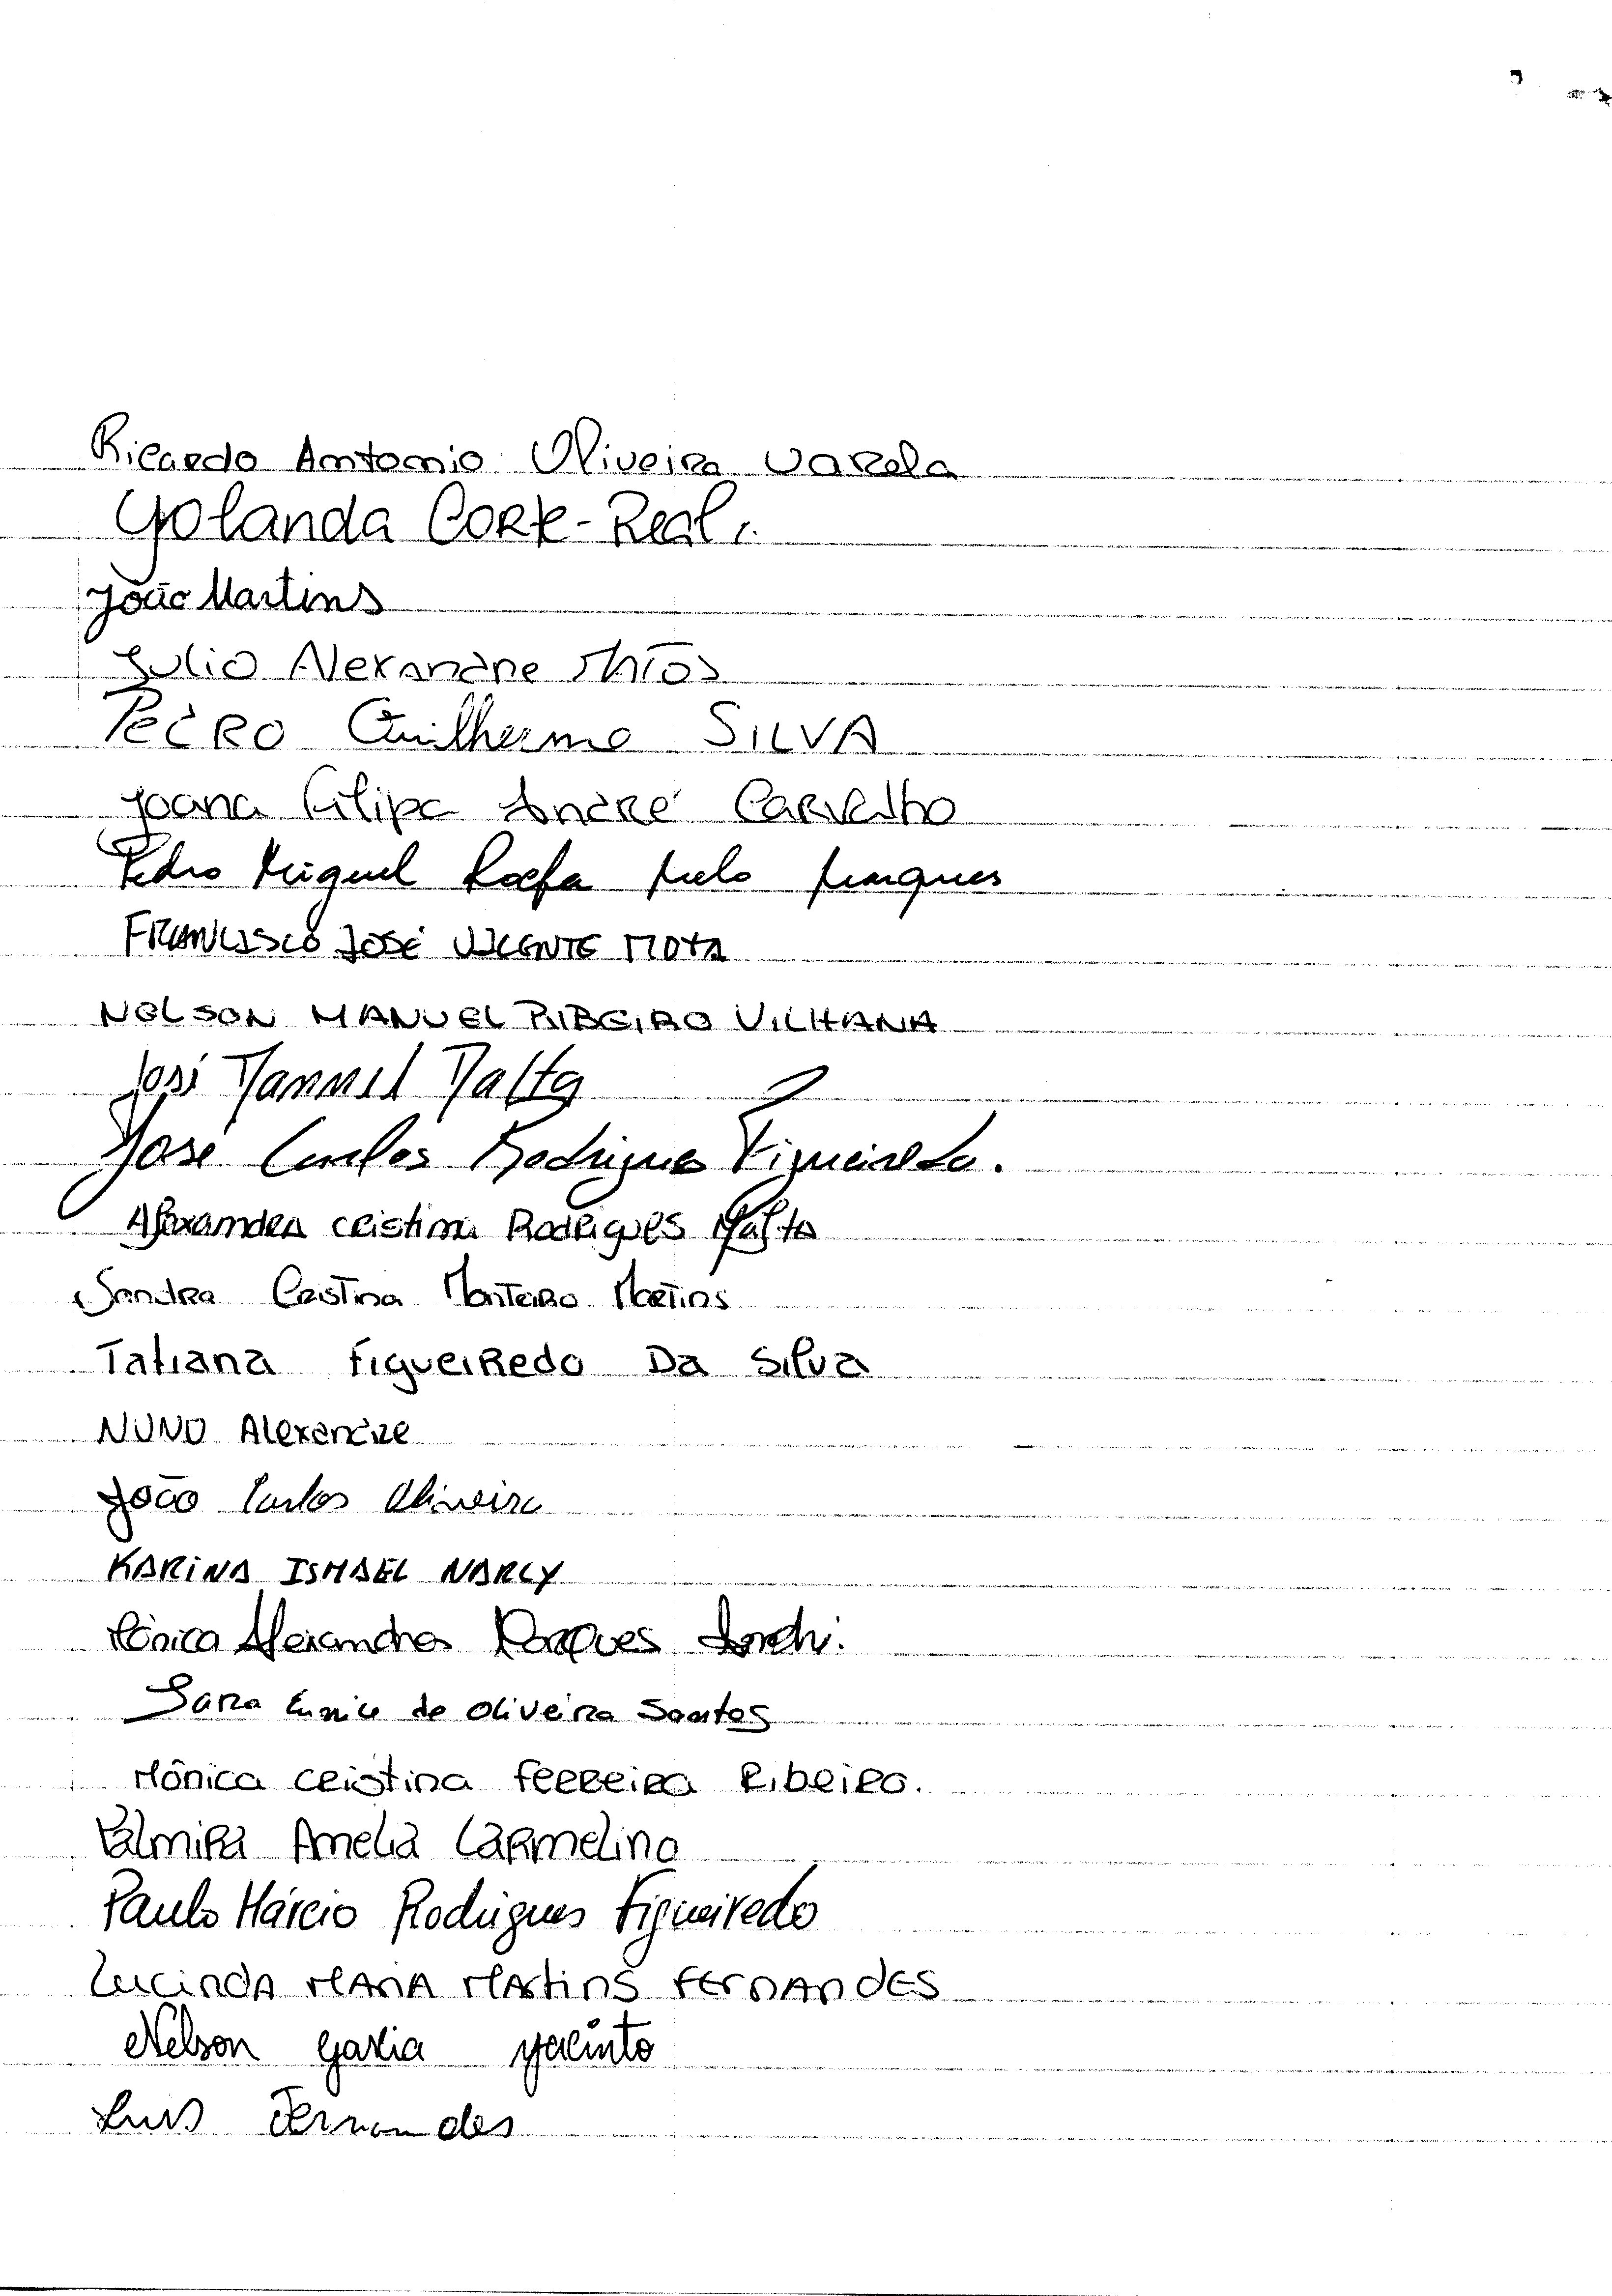 Ricardo Antonio Oliveira Varela
Yolanda Corte-Real.
João Martins
Julio Alexandre
Pedro Guilherme SILVA
Joana Filipa André Carvalho
Pedro Miguel Melo Marques
FRANCISCO JOSÉ VICENTE MOTA
NELSON MANUEL RIBEIRO VILHANA
José Manuel Malta
José Carlos Rodrigues Figueiredo.
Alexandra Cristina Rodrigues Malta
Sandra Cristina Monteiro Martins
Tatiana Figueiredo Da Silva
NUNO Alexandre
João Carlos Oliveira
KARINA ISMAEL NARCY
Mónica Alexandra Marques
Sara Eunice de Oliveira Santos
Mónica Cristina Ferreira Ribeiro.
Palmira Amelia Carmelino
Paulo Márcio Rodrigues Figueiredo
Lucinda Maria Martins Fernandes
Nelson Garcia Jacinto
Luis Fernandes